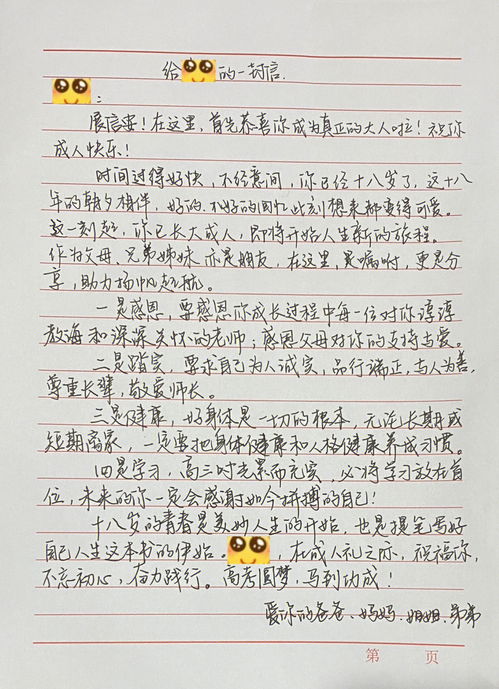 给 的一封信.
:
展信安!在这里,首先恭喜你成为真正的大人啦!祝你
成人快乐!
时间过得好快,不经意间,你已经十八岁了,这十八
年的朝夕相伴,好的.不好的回忆此刻想来都变得可爱。
这一刻起,你已长大成人,即将开始人生新的旅程。
作为父母、兄弟姊妹亦是朋友,在这里,是嘱咐,更是分
享,助力扬帆起航。
一是感恩,要感恩你成长过程中每一位对你谆谆
教诲和深深关怀的老师;感恩父母对你的支持与爱。
二是踏实,要求自己为人诚实,品行端正,与人为善,
尊重长辈,敬爱师长。
三是健康,好身体是一切的根本,无论长期或
短期离家,一定要把身体健康和人格健康养成习惯。
四是学习,高三时光累而充实,必将学习放在首
位,未来的你一定会感谢如今拼搏的自己!
十八岁的青春是美妙人生的开始,也是提笔写好
自己人生这本书的伊始。 ,在成人礼之际,祝福你,
不忘初心,奋力践行。高考圆梦,马到功成!
爱你的爸爸、妈妈、姐姐、弟弟
第 页